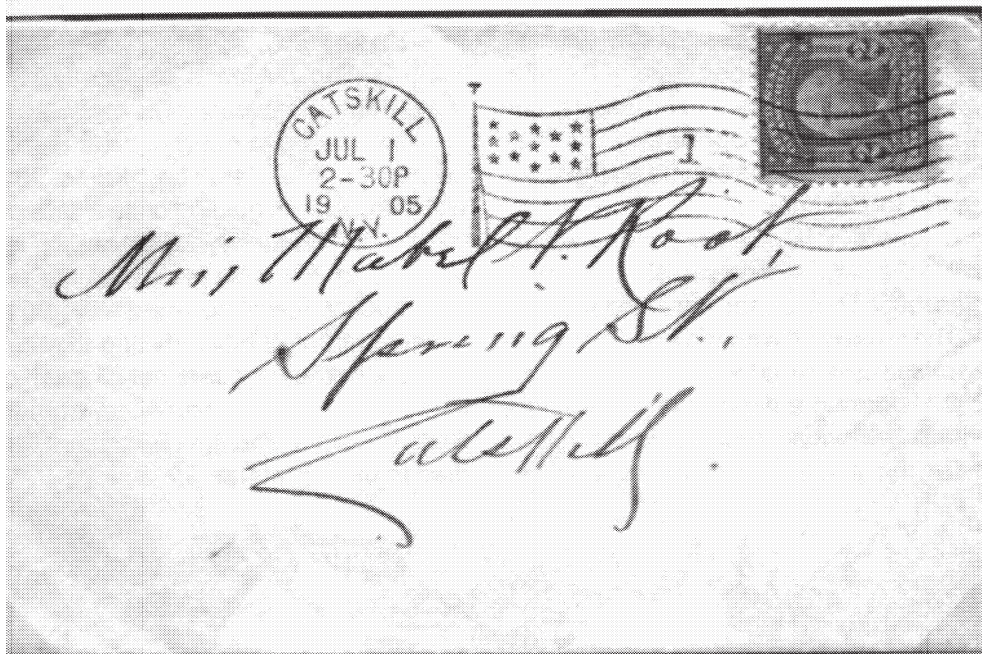 CATSKILL
JUL 1
2-30P
19 05
N.Y.
1
Miss Mabel A. Root,
Spring St.,
Catskill.